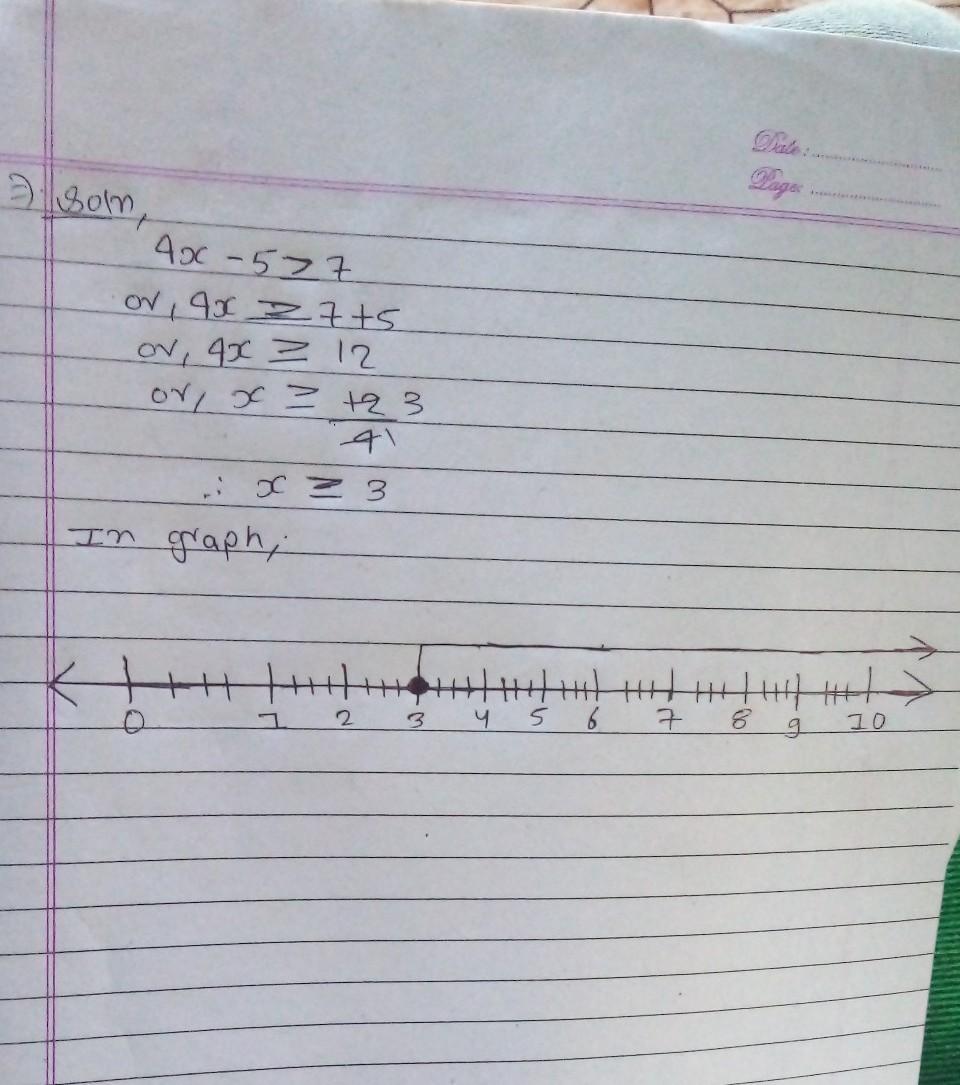 Date:
Page:
⇒ Soln,
4x - 5 ≥ 7
or, 4x ≥ 7+5
or, 4x ≥ 12
or, x ≥ 12 3
4 1
∴ x ≥ 3
In graph,
0 1 2 3 4 5 6 7 8 9 10